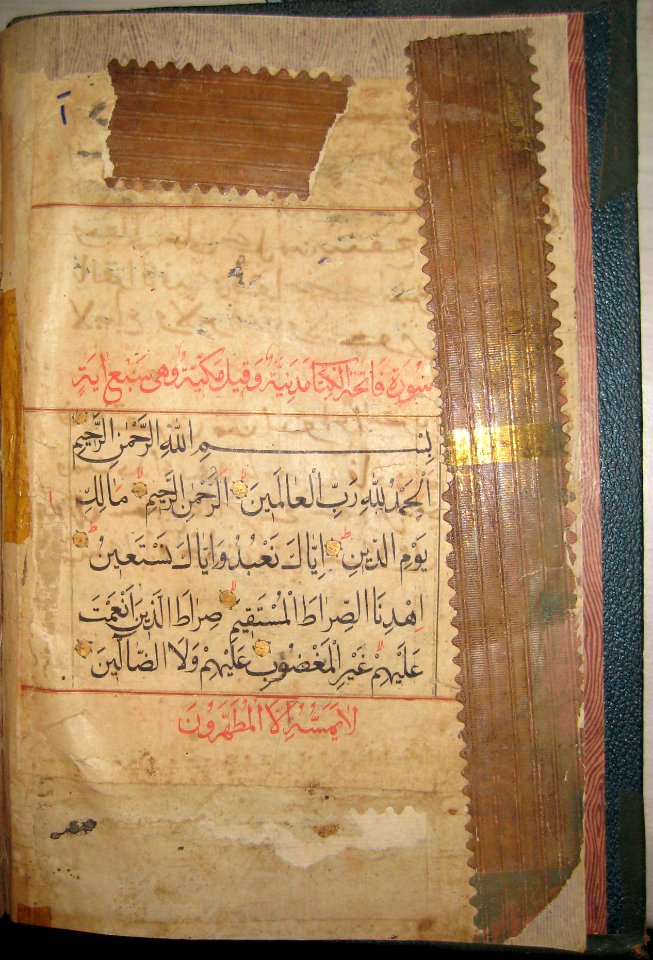 سُورَة فَاتِحَة الْكِتَا مَدَنِيَّة وَقِيلَ مَكِيَّة وَهِيَ سَبْع اٰيَةٍ
بِسْمِ اللّٰهِ الرَّحْمٰنِ الرَّحِيْمِ
اَلْحَمْدُ لِلّٰهِ رَبِّ الْعَالَمِيْنَ اَلرَّحْمٰنِ الرَّحِيْمِ مَالِكِ
يَوْمِ الدِّيْنِ اِيَّاكَ نَعْبُدُ وَاِيَّاكَ نَسْتَعِيْنُ
اِهْدِنَا الصِّرَاطَ الْمُسْتَقِيْمَ صِرَاطَ الَّذِيْنَ اَنْعَمْتَ
عَلَيْهِمْ غَيْرِ الْمَغْضُوْبِ عَلَيْهِمْ وَلَا الضَّالِّيْنَ
لَا يَمَسُّهُ اِلَّا الْمُطَهَّرُوْنَ